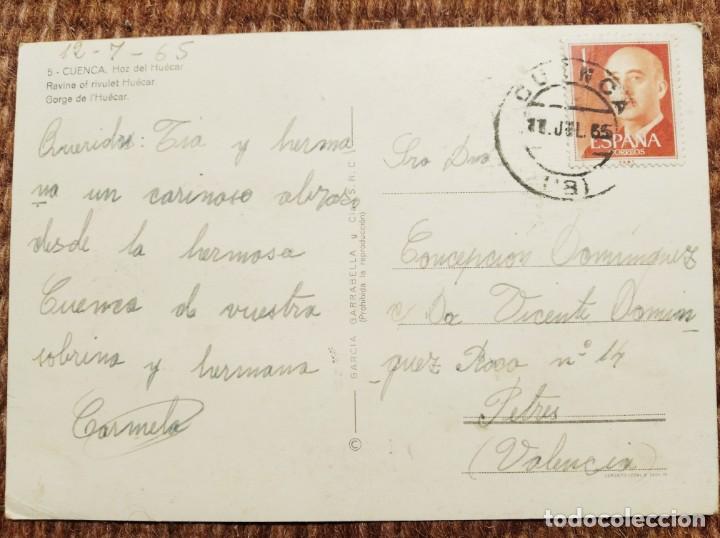 12-7-65
5 - CUENCA. Hoz del Huécar
Ravine of rivulet Huécar.
Gorge de l'Huécar.
Querida: Tia y herma
na un carinoso abrazo
desde la hermosa
Cuenca de vuestra
sobrina y hermana
Carmela
© GARCIA GARRABELLA y Cia. S.R.C.
(Prohibida la reproducción)
CUENCA
JUL. 65
1
ESPAÑA
CORREOS
Sra Dna
Concepción Domínguez
c Vicente Domin
guez Roso nº 14
Petres
(Valencia)
todocoleccion.net